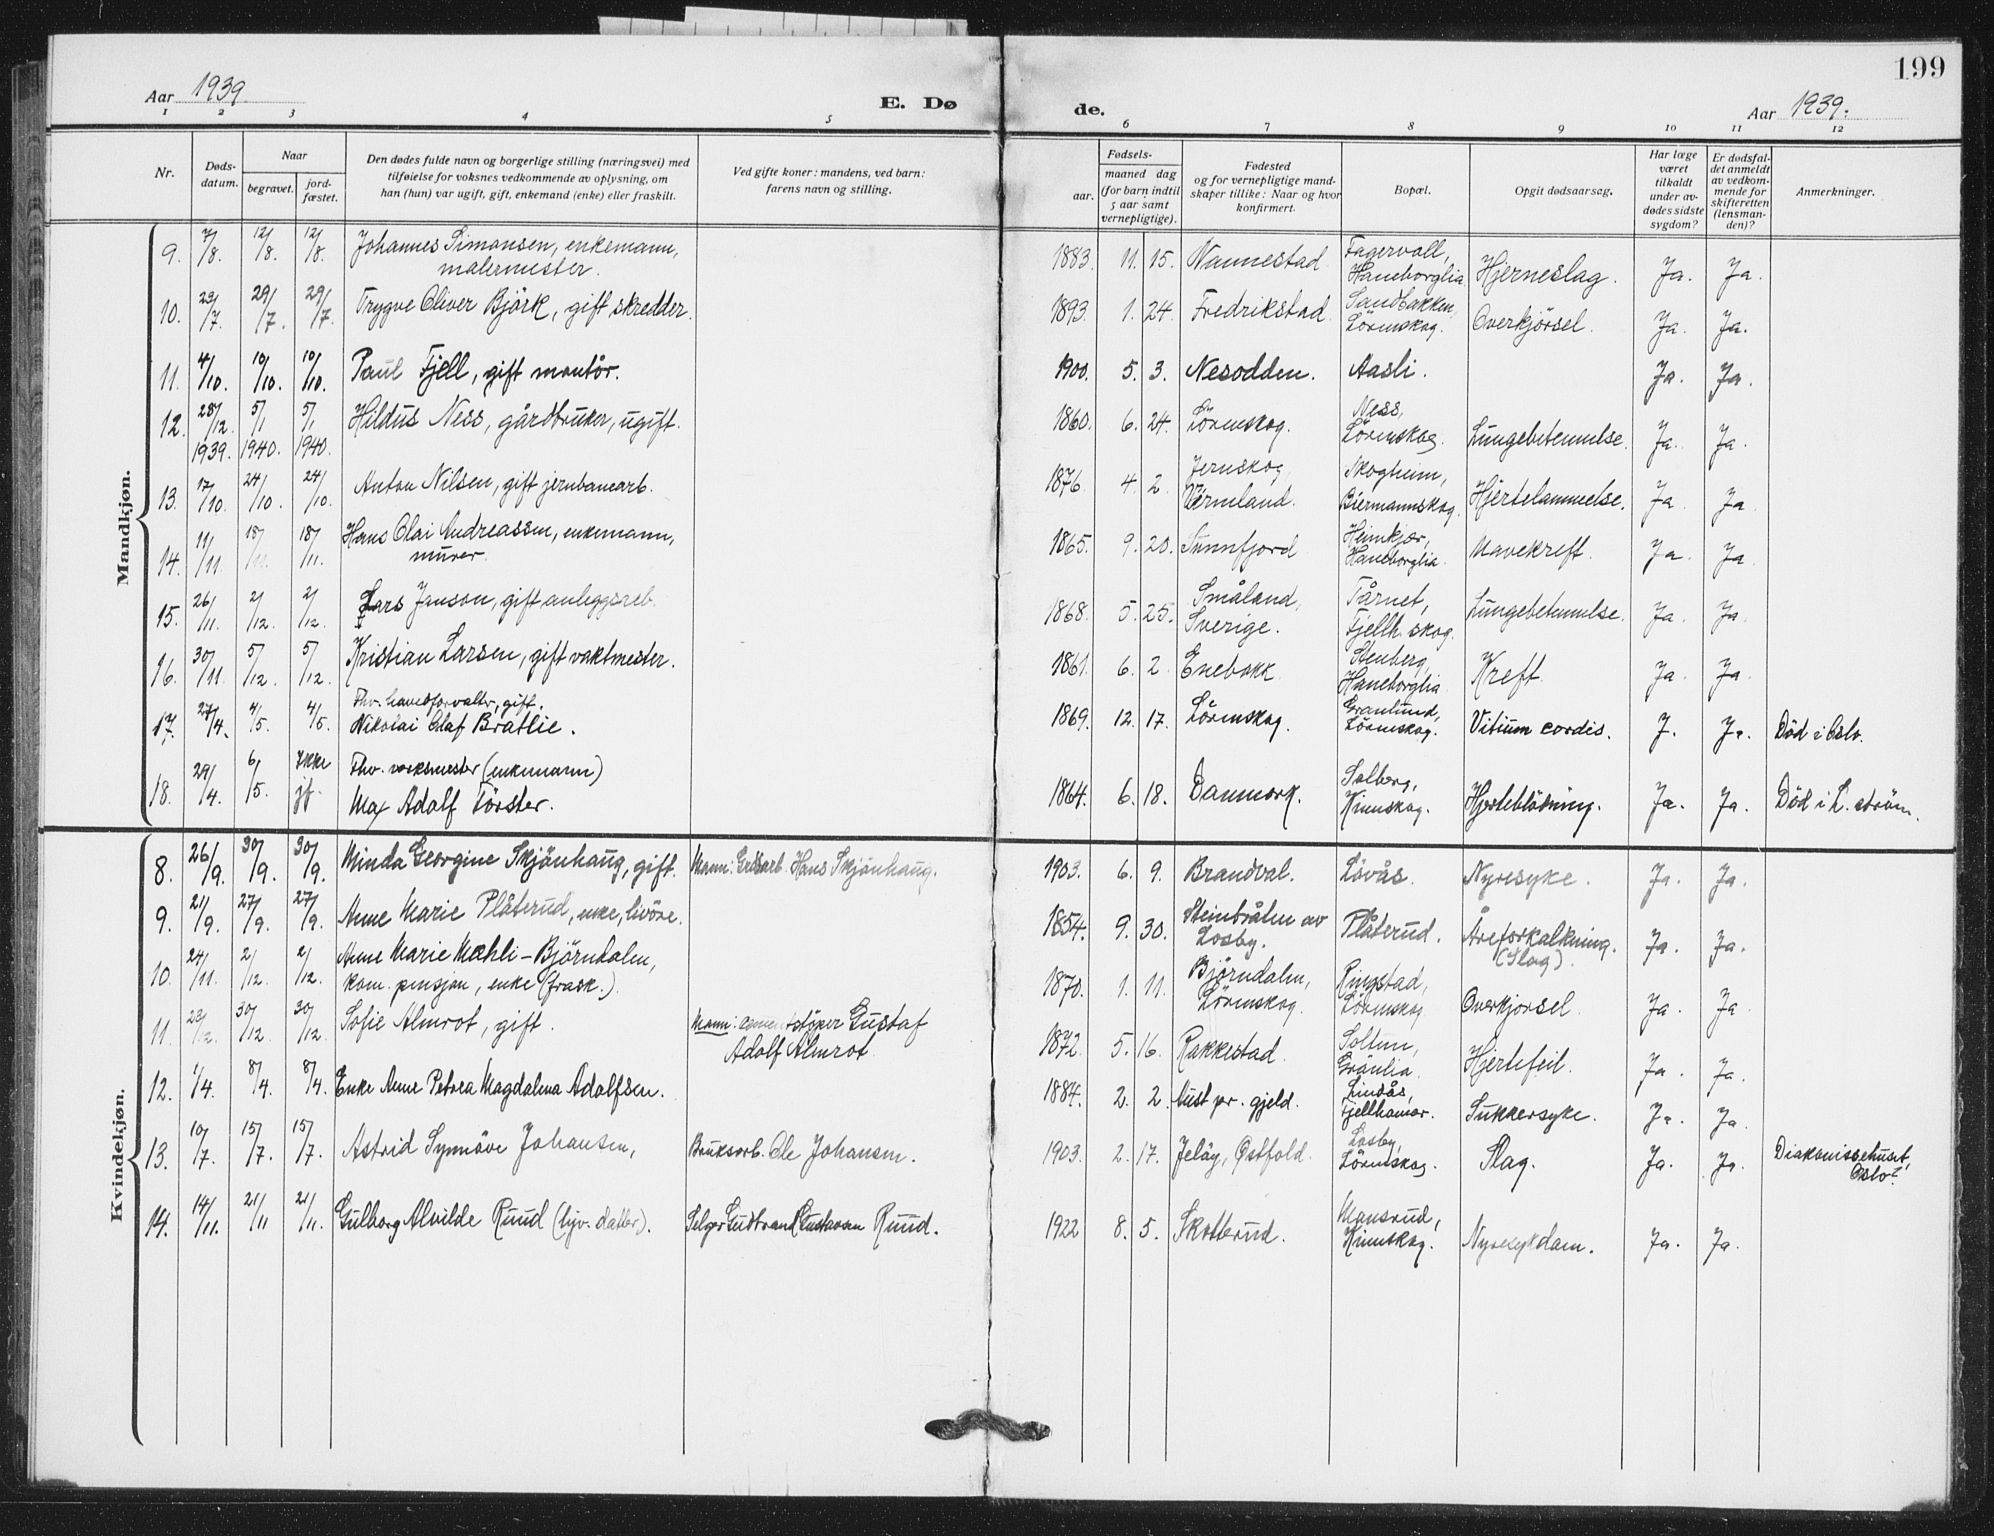 199
Aar 1939.
E. Dø
de.
Aar 1939.
1 2 3 4 5 6 7 8 9 10 11 12
Nr.
Døds-
datum.
Naar
begravet.
jord-
fæstet.
Den dødes fulde navn og borgerlige stilling (næringsvei) med
tilføielse for voksnes vedkommende av oplysning, om
han (hun) var ugift, gift, enkemand (enke) eller fraskilt.
Ved gifte koner: mandens, ved barn:
farens navn og stilling.
Fødsels-
aar.
maaned dag
(for barn indtil
5 aar samt
vernepligtige).
Fødested
og for vernepligtige mand-
skaper tillike: Naar og hvor
konfirmert.
Bopæl.
Opgit dødsaarsag.
Har læge
været
tilkaldt
under av-
dødes sidste
sygdom?
Er dødsfal-
det anmeldt
av vedkom-
mende for
skifteretten
(lensman-
den)?
Anmerkninger.
Mandkjøn.
9. 7/8. 12/8. 12/8. Johannes Simonsen, enkemann,
malermester.
1883. 11. 15. Nannestad Fagervoll,
Haneborglia Hjerneslag. Ja. Ja.
10. 23/7. 29/7. 29/7. Trygve Oliver Björk, gift skredder.
1893. 1. 24. Fredrikstad. Sandbakken,
Lörenskog. Overkjörsel. Ja. Ja.
11. 4/10. 10/10. 10/10. Paul Fjell, gift montör.
1900. 5. 3. Nesodden. Aasli. Ja. Ja.
12. 28/12 1939. 5/1 1940. 5/1 1940. Hildus Ness, gårdbruker, ugift.
1860. 6. 24. Lörenskog. Ness,
Lörenskog. Lungebetennelse. Ja. Ja.
13. 17/10. 24/10. 24/10. Anton Nilsen, gift jernbanearb.
1876. 4. 2. Jernskog
Värmland. Skogheim,
Biermannskog. Hjertelammelse. Ja. Ja.
14. 11/11. 18/11. 18/11. Hans Olai Andreassen, enkemann,
murer.
1865. 9. 20. Sunnfjord Heimkjær,
Haneborglia. Mavekreft. Ja. Ja.
15. 26/11. 2/12. 2/12. Lars Janson, gift anleggsarb.
1868. 5. 25. Småland,
Sverige. Tårnet,
Fjellh. skog. Lungebetennelse. Ja. Ja.
16. 30/11. 5/12. 5/12. Kristian Larsen, gift vaktmester.
1861. 6. 2. Enebakk Stenberg,
Haneborglia Kreft. Ja. Ja.
17. 27/4. 4/5. 4/5. Fhv. gift.
Nikolai Olaf Bratlie.
1869. 12. 17. Lörenskog. Granlund,
Lörenskog. Vitium cordis. J. Ja. Död i Oslo.
18. 29/4. 6/5. Ikke
jf. Fhv. verksmester (enkemann)
Max Adolf Förster.
1864. 6. 18. Danmark. Solberg,
Kinnskog. Hjerteblödning. Ja. Ja. Död i L. ström.
Kvindekjøn.
8. 26/9. 30/9. 30/9. Minda Georgine Skjönhaug, gift. Mann: Hans Skjönhaug.
1903. 6. 9. Brandval. Lövås. Nyresyke. Ja. Ja.
9. 21/9. 27/9. 27/9. Anne Marie Plåterud, enke, livöre.
1854. 9. 30. Steinbråten av
Losby. Plåterud. Åreforkalkning.
(Slag). Ja. Ja.
10. 24/11. 2/12. 2/12. Anne Marie Mæhli-Björndalen,
kom. pensjon, enke (frask.).
1870. 1. 11. Björndalen,
Lörenskog Ringstad,
Lörenskog Overkjorsel Ja. Ja
11. 23/12. 30/12. 30/12. Sofie Almrot, gift. Mann: cementstöper Gustaf
Adolf Almrot.
1872. 5. 16. Rakkestad. Soltun,
Grönlia. Hjertefeil. Ja. Ja.
12. 1/4. 8/4. 8/4. Enke Anne Petrea Magdalena Adolfsen.
1884. 2. 2. Aust pr. gjeld. Lindås,
Fjellhamar. Sukkersyke. Ja. Ja.
13. 10/7. 15/7. 15/7. Astrid Synnöve Johansen, Bruksarb. Ole Johansen.
1903. 2. 17. Jelöy, Østfold. Losby,
Lörenskog. Slag. Ja. Ja. Diakonissehuset,
Oslo.
14. 14/11. 21/11 21/11. Gulborg Alvilde Ruud (hjv. datter). Selger Gudbrand Gustavsen Ruud.
1922 8. 5. Skotterud. Monsrud,
Kinnskog. Nyresykdom. Ja. Ja.